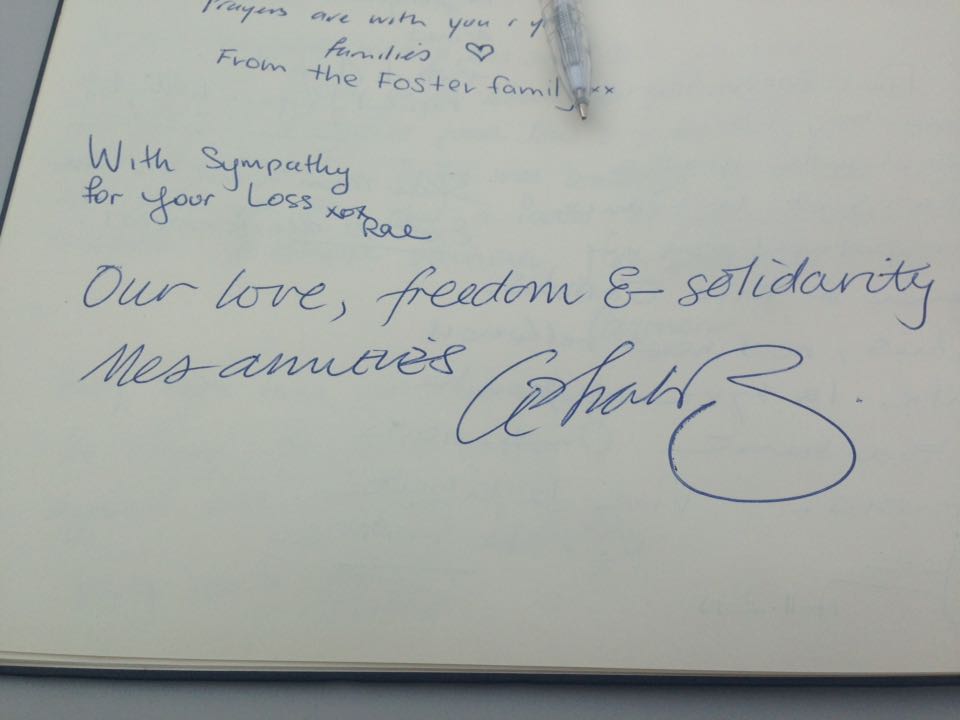 Prayers are with you
families ♡
From the Foster family xx
With Sympathy
for your Loss xox
Rae
Our love, freedom & solidarity
Mes amitiés